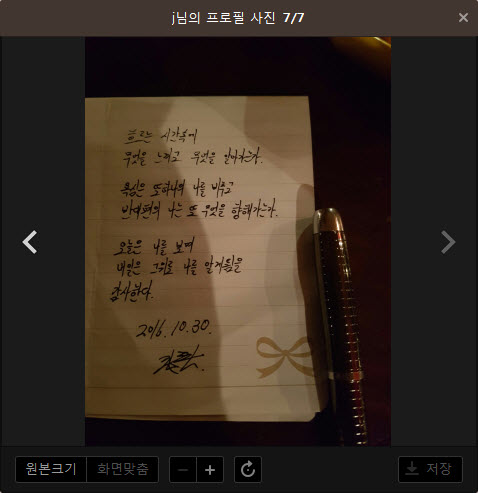 j님의 프로필 사진 7/7
흐르는 시간속에
무엇을 느끼고 무엇을 알아가는가.
욕심은 또하나의 나를 비우고
반대편의 나는 또 무엇을 향해가는가.
오늘은 나를 보며
내일은 그뒤로 나를 알게됨을
감사한다.
2016.10.30.
원본크기 화면맞춤 저장